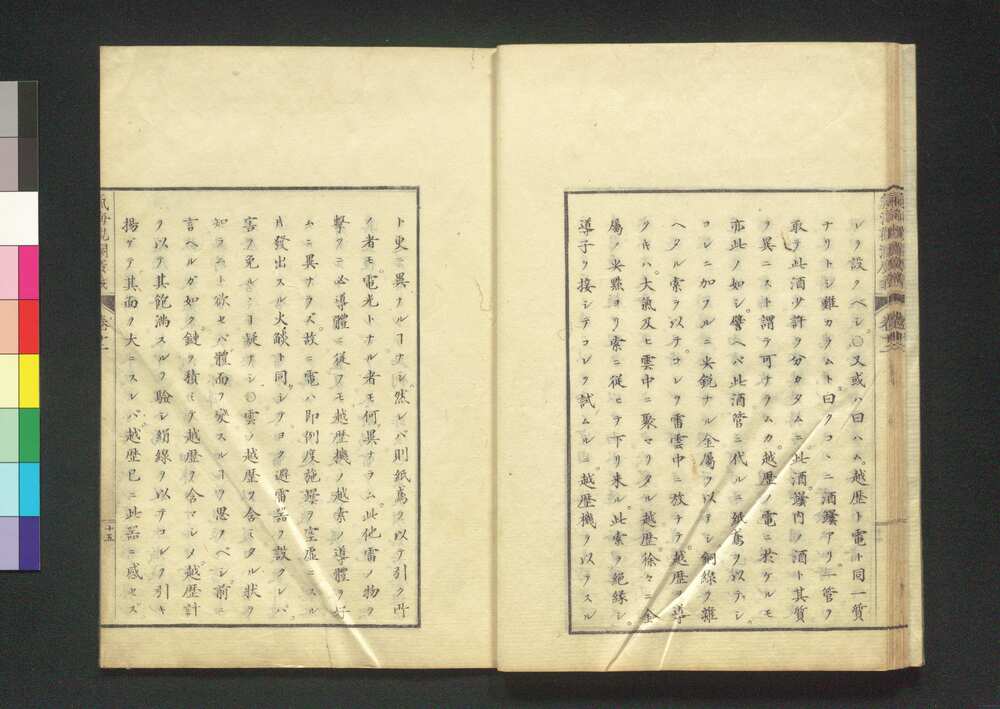 レヲ設クベシ○又或ハ曰ハム越歴ト電ト同一質
ナリトシ難カラムト曰クコヽニ酒罎アリ一管ヲ
以テ此酒少許ヲ分カタムニ此酒罎内ノ酒ト其質
ヲ異ニスト謂テ可ナラムカ越歴ノ電ニ於ケルモ
亦此ノ如シ譬ヘバ此酒管ニ代ルニ紙鳶ヲ以テシ
コレニ加フルニ尖鋭ナル金屬ヲ以テシ銅線ヲ雜
ヘタル索ヲ以テコレヲ雷雲中ニ放チテ越歴ヲ導
クキハ大氣及ヒ雲中ニ聚マリタル越歴徐々ニ金
屬ノ尖ヨリ索ニ従ヒテ下リ来ル此索ヲ絶縁シ
導子ヲ接シテコレヲ試ムルニ越歴機ヲ以テスル
ト更ニ異ナルナシ然レバ則紙鳶ヲ以テ引ク所
ノ者モ電光トナル者モ何異ナラム此他雷ノ物ヲ
擊ツニ必導體ニ従フモ越歴機ノ越索ノ導體ヲ好
ムニ異ナラズ故ニ電ハ即例度施罎ヲ空虚ニスル
時發出スル火燄ト同シテヨク避雷器ヲ設クレバ
害ヲ免ルヽ疑ナシ○雲ノ越歴ヲ含ミタル状ヲ
知ラント欲セバ體面ノ変スルヲ思フベシ前ニ
言ヘルガ如ク鏈ヲ積ミテ越歴ヲ含マシメ越歴計
ヲ以テ其飽満スルヲ驗シ絹線ヲ以テコレヲ引キ
揚ゲテ其面ヲ大ニスレバ越歴已ニ此器ニ感セズ
十五